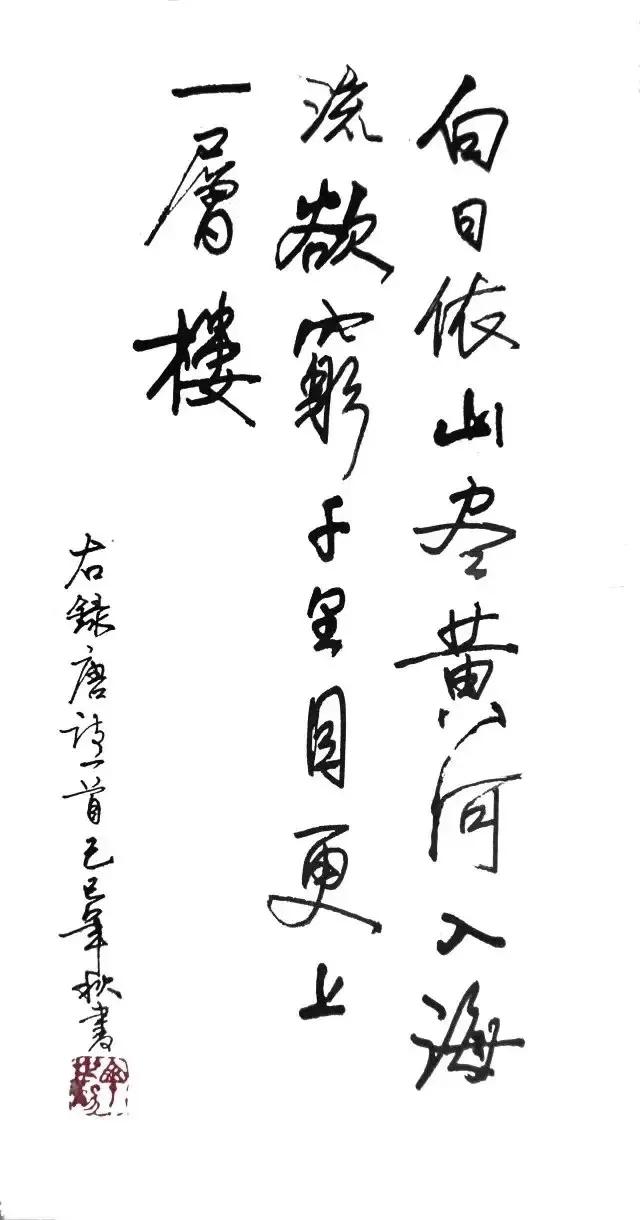 白日依山尽黄河入海
流欲窮千里目更上
一層樓
右録唐诗一首己巳年秋書